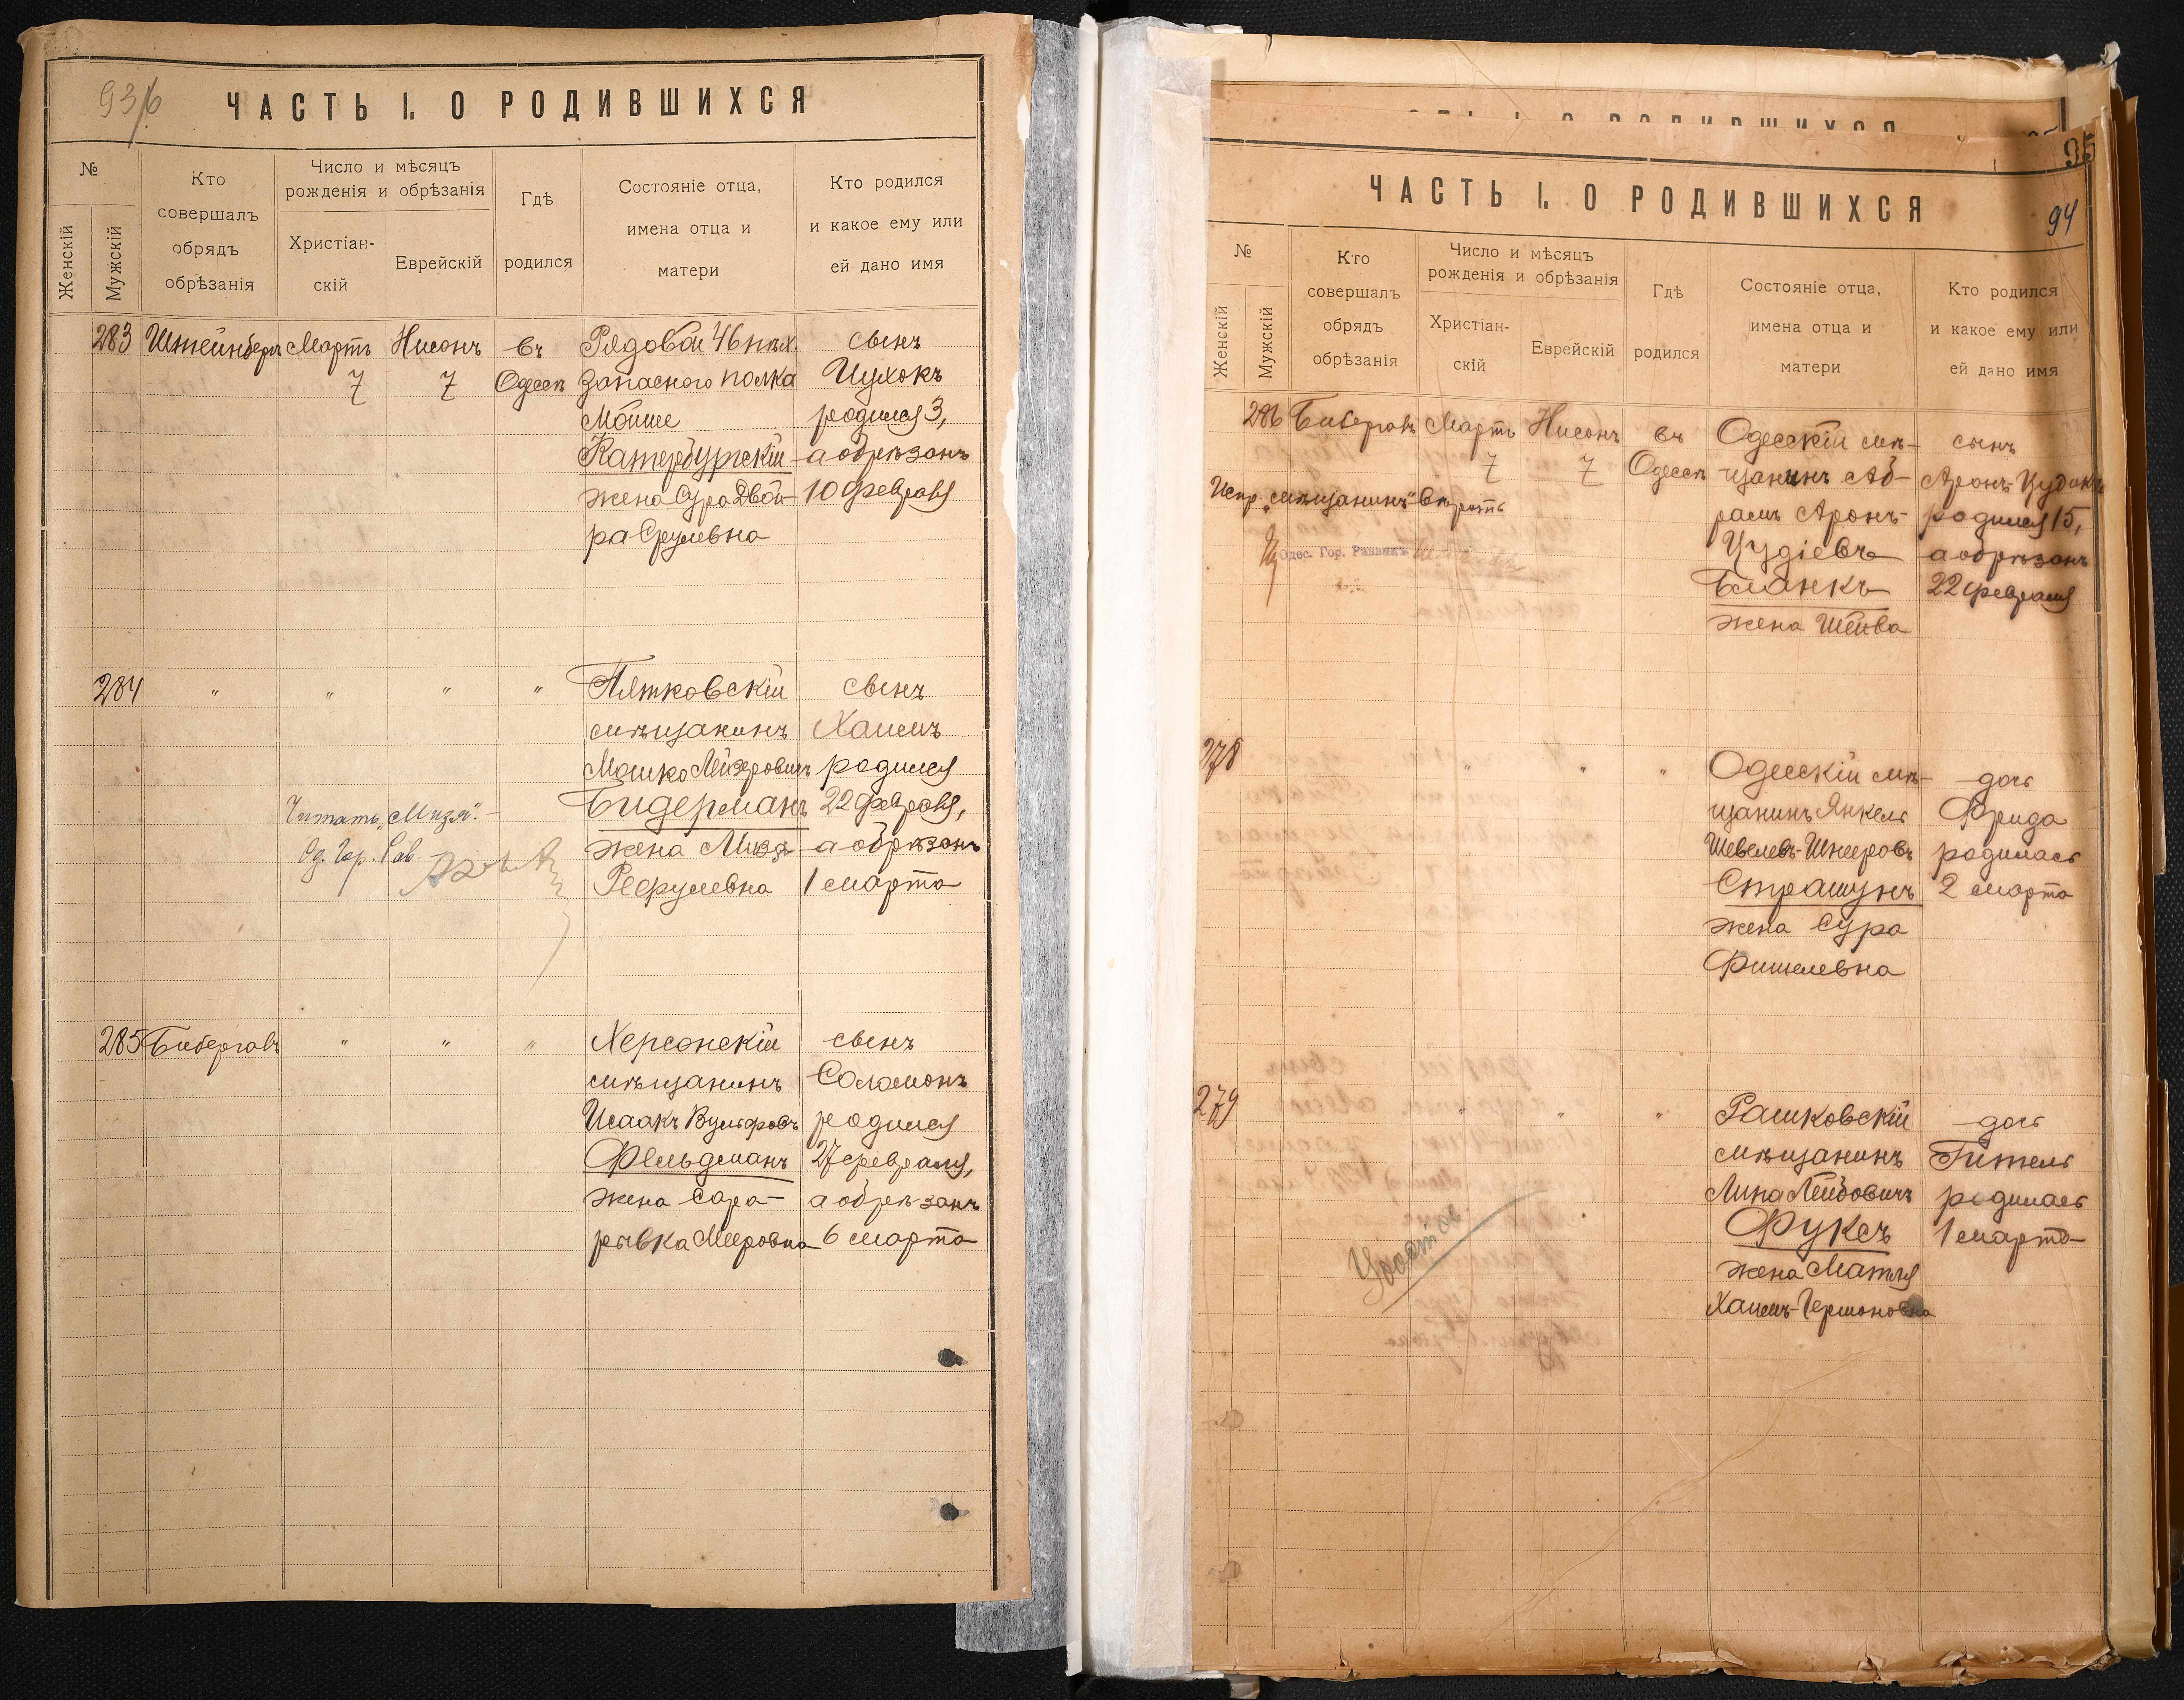 ЧАСТЬ I. О РОДИВШИХСЯ
№
Женскій
Мужскій
Кто
совершалъ
обрядъ
обрѣзанія
Число и мѣсяцъ
рожденія и обрѣзанія
Христіан-
скій
Еврейскій
Гдѣ
родился
Состояніе отца,
имена отца и
матери
Кто родился
и какое ему или
ей дано имя
283 Штейнбергъ Мартъ Нисонъ въ Рядовой 46 пѣх. сынъ
7 7 Одессѣ запасного полка Ицхокъ
Мойше родился 3,
Катербургскій а обрѣзанъ
жена Сура Двой- 10 февраля
ра Срулевна
284 " " " " Пятковскій сынъ
мѣщанинъ Хаимъ
Мошко Лейзеровичъ родился
Бидерманъ 22 февраля,
Читать „Мизя".
Од. Гор. Рав.
жена Мизя а обрѣзанъ
1 марта
285 Бибергалъ " " " Херсонскій сынъ
мѣщанинъ Соломонъ
Исаакъ Вульфовъ родился
Фельдманъ 27 февраля,
жена Сара- а обрѣзанъ
рывка Мееровна 6 марта
94
ЧАСТЬ I. О РОДИВШИХСЯ
№
Женскій
Мужскій
Кто
совершалъ
обрядъ
обрѣзанія
Число и мѣсяцъ
рожденія и обрѣзанія
Христіан-
скій
Еврейскій
Гдѣ
родился
Состояніе отца,
имена отца и
матери
Кто родился
и какое ему или
ей дано имя
286 Бибергалъ Мартъ Нисонъ въ Одесскій мѣ- сынъ
7 7 Одессѣ щанинъ Аб- Аронъ-Іудокъ
Испр. „мѣщанинъ" вѣрить
Одес. Гор. Раввинъ
рамъ Аронъ- родился 15,
Іудіевъ а обрѣзанъ
Бланкъ 22 февраля
жена Шейва
278 " " " Одесскій мѣ- дочь
щанинъ Янкель Фрида
Шевелевъ-Шнееровъ родилась
Страшунъ 2 марта
жена Сура
Фишелевна
279 " " " Рашковскій дочь
мѣщанинъ Гитель
Липа Лейбовичъ родилась
Фуксъ 1 марта
жена Матля
Хаимъ-Гермоновна